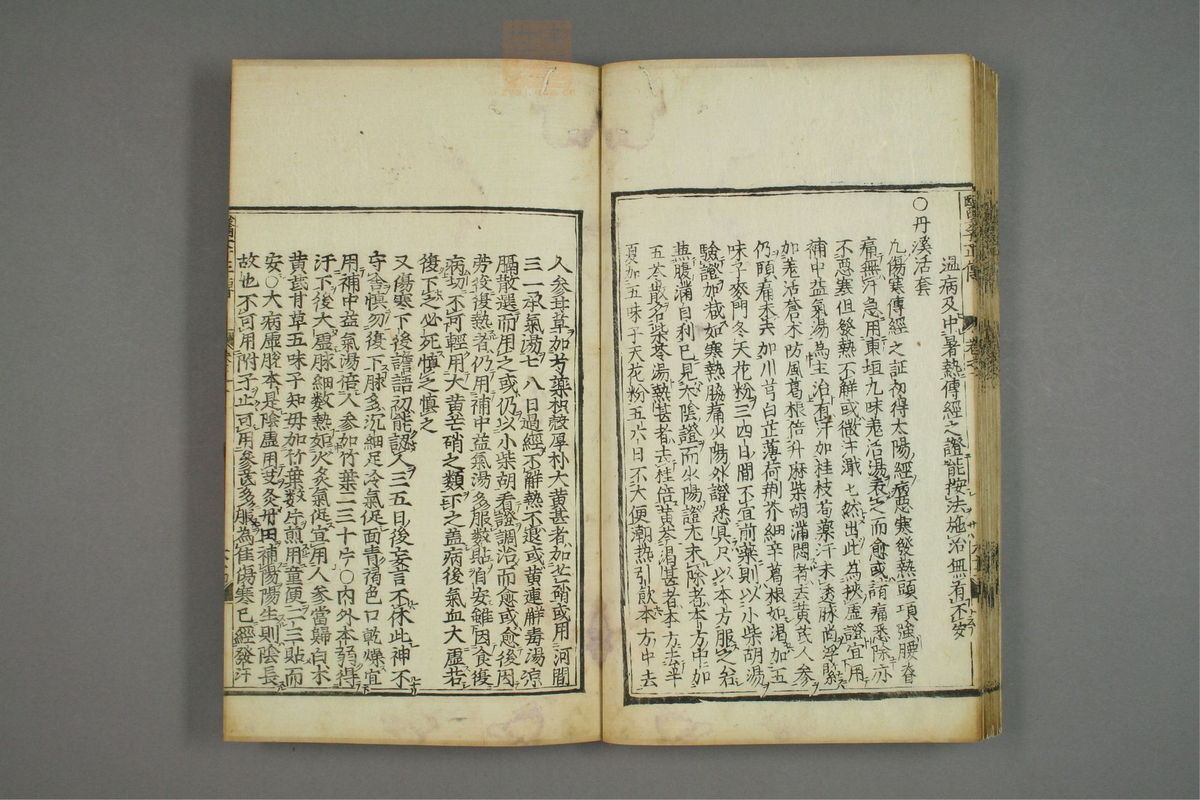 溫病及中暑熱傳經之證能按法施治無有不安
○丹溪活套
凡傷寒傳經之証初得太陽經病惡寒發熱頭項強腰脊
痛無汗急用東垣九味羌活湯表之而愈或諸痛悉除亦
不惡寒但發熱不解或微汗濈濈然出此為挾虛證宜用
補中益氣湯為主治有汗加桂枝芍藥汗未透脉尚浮緊
加羌活蒼朮防風葛根倍升麻柴胡滿悶者去黃芪人參
仍頭痛未去加川芎白芷薄荷荊芥細辛葛根如渴加五
味子麥門冬天花粉三四日間不宜前藥則以小柴胡湯
驗證加減如寒熱脇痛少陽外證悉具只以本方服之若
無腹滿自利已見太陰證而少陽證尤未除者本方中加
五苓散名柴苓湯熱甚者去桂倍黃芩渴甚者本方去辛
夏加五味子天花粉五六日不大便潮熱引飲本方中去
人參甘草加芍藥枳殼厚朴大黃甚者加芒硝或用河間
三一承氣湯七八日過經不解熱不退或黃連解毒湯涼
膈散選而用之或仍以小柴胡看證調治而愈或愈後因
勞役復熱者仍用補中益氣湯多服數貼自安雖因食復
病切不可輕用大黃芒硝之類下之蓋病後氣血大虛若
復下之必死慎之慎之
又傷寒下後譫語初能認人三五日後妄言不休此神不
守舍慎勿復下脉多沉細足冷氣促面青褐色口乾燥宜
用補中益氣湯倍人參加竹葉二三十片○內外本弱得
汗下後大虛脉細數熱如火炙氣促宜用人參當歸白朮
黃芪甘草五味子知母加竹葉數片煎用童便二三貼而
安○大病虛脫本是陰虛用艾灸丹田補陽陽生則陰長
故也不可用附子止可用參芪多服為佳傷寒已經發汗